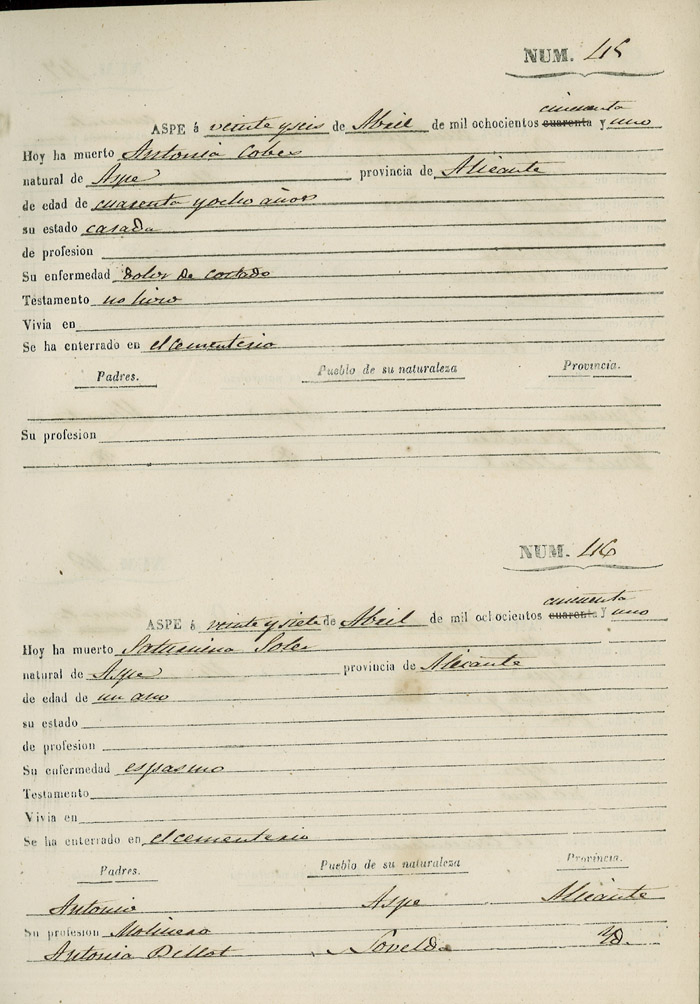 NUM. 45
cincuenta
ASPE á veinte y seis de Abril de mil ochocientos cuarenta y uno
Hoy ha muerto Antonia Cobes
natural de Aspe provincia de Alicante
de edad de cuarenta y ocho años
su estado casada
de profesion
Su enfermedad dolor de costado
Testamento no hizo
Vivia en
Se ha enterrado en el cementerio
Padres. Pueblo de su naturaleza Provincia.
Su profesion
NUM. 46
cincuenta
ASPE á veinte y siete de Abril de mil ochocientos cuarenta y uno
Hoy ha muerto Saturnina Soler
natural de Aspe provincia de Alicante
de edad de un año
su estado
de profesion
Su enfermedad espasmo
Testamento
Vivia en
Se ha enterrado en el cementerio
Padres. Pueblo de su naturaleza Provincia.
Antonio Aspe Alicante
Su profesion Molinero
Antonia Pellot Novelda Yd.